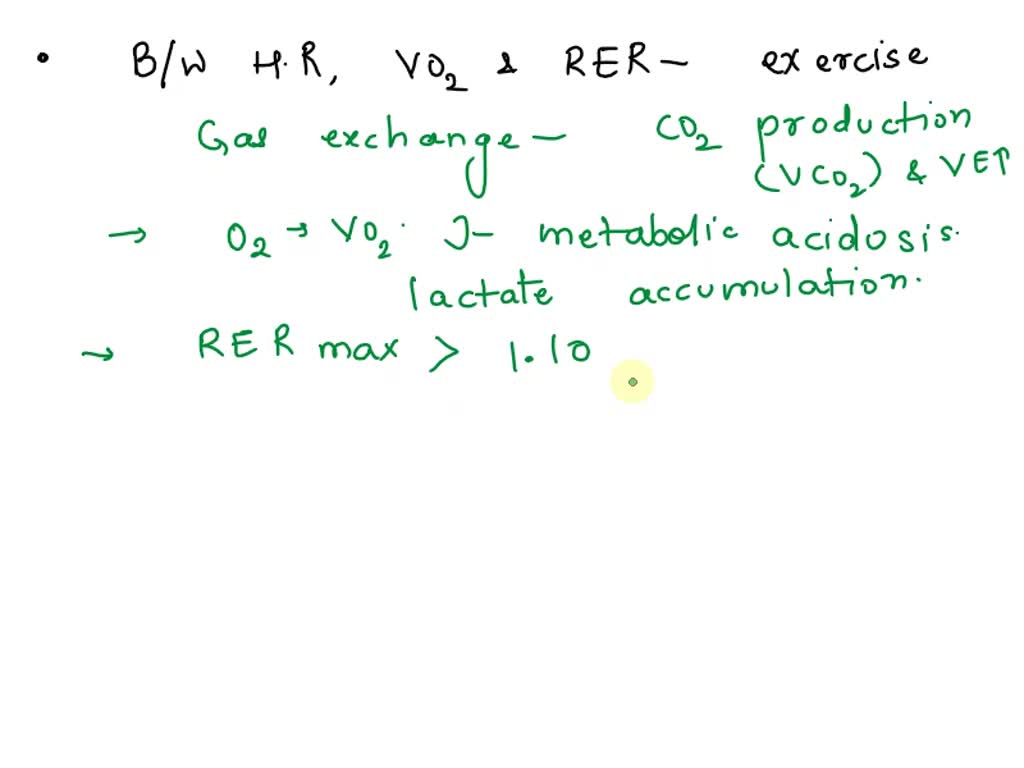 • B/W H.R, VO₂ & RER – exercise
Gas exchange – CO₂ production
(VCO₂) & VE↑
→ O₂ → VO₂. J– metabolic acidosis.
lactate accumulation.
→ RER max > 1.10